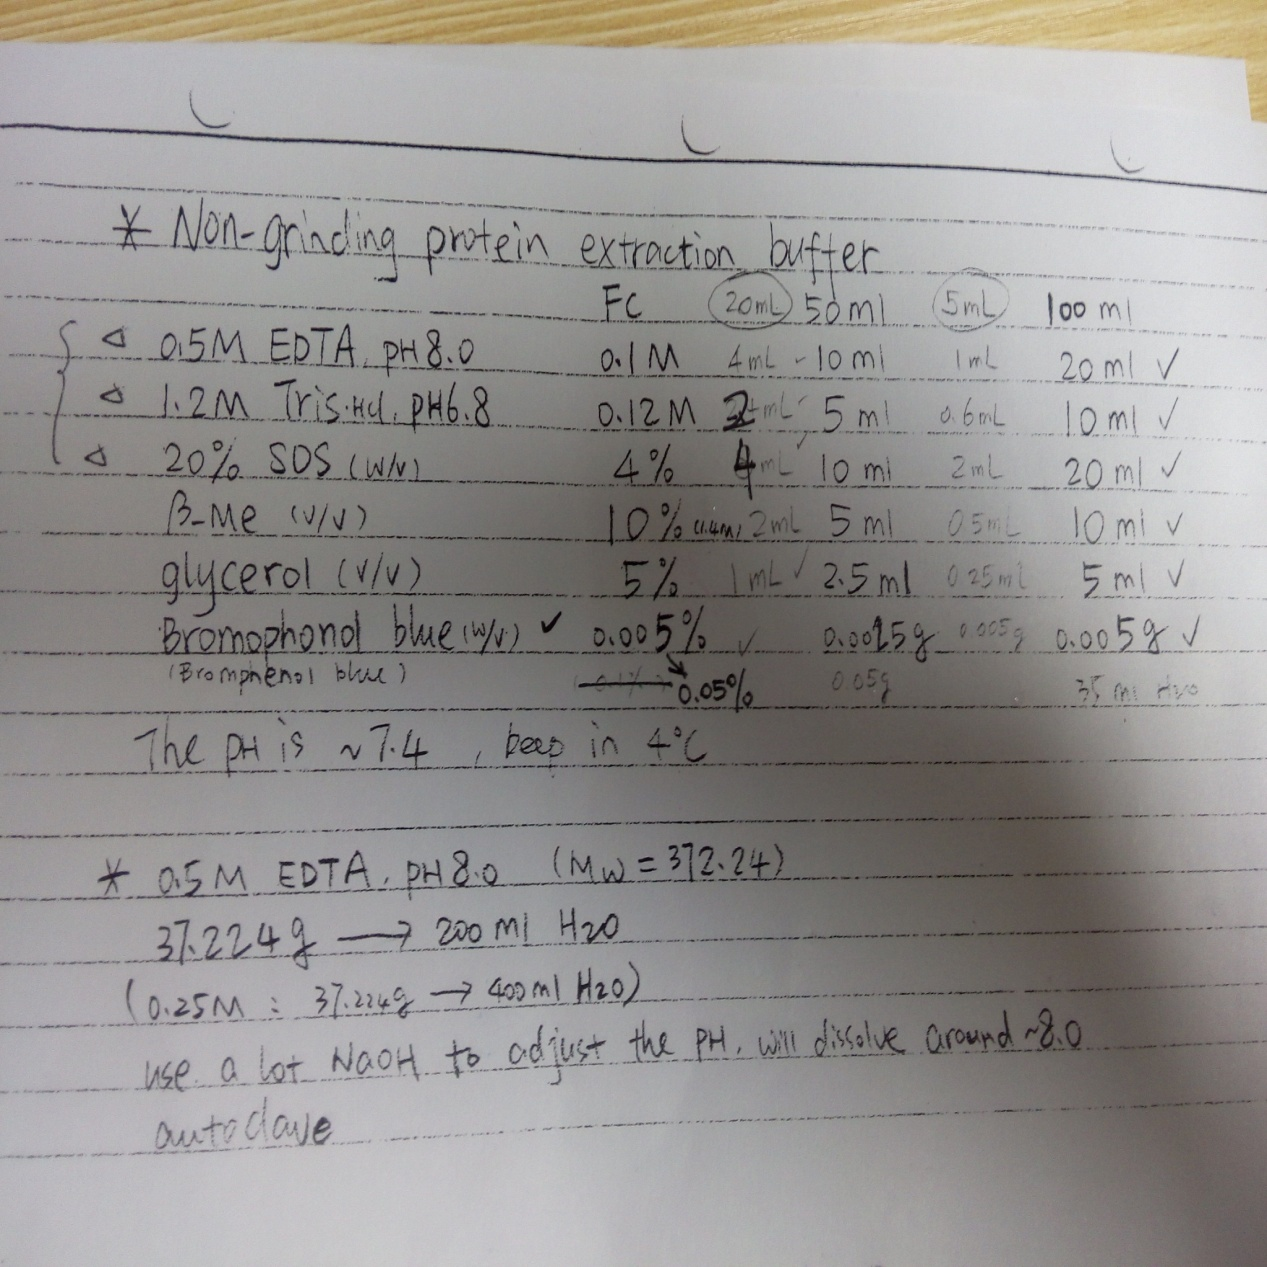 * Non-grinding protein extraction buffer
FC 20mL 50ml 5mL 100 ml
0.5M EDTA, pH8.0 0.1M 4mL 10ml 1mL 20ml ✓
1.2M Tris.Hcl, pH6.8 0.12M 2 mL 5ml 0.6mL 10ml ✓
20% SDS (w/v) 4% 4 mL 10ml 2mL 20ml ✓
β-Me (v/v) 10% 2mL 5ml 0.5mL 10ml ✓
glycerol (v/v) 5% 1mL ✓ 2.5ml 0.25ml 5ml ✓
Bromophonol blue (w/v) ✓ 0.005% ✓ 0.0025g 0.005g 0.005g ✓
(Bromphenol blue) 0.05% 0.05g 35 ml H2O
The pH is ~7.4, keep in 4°C
* 0.5M EDTA, pH8.0 (Mw = 372.24)
37.224g → 200ml H2O
(0.25M : 37.224g → 400ml H2O)
use a lot NaOH to adjust the pH, will dissolve around ~8.0
autoclave